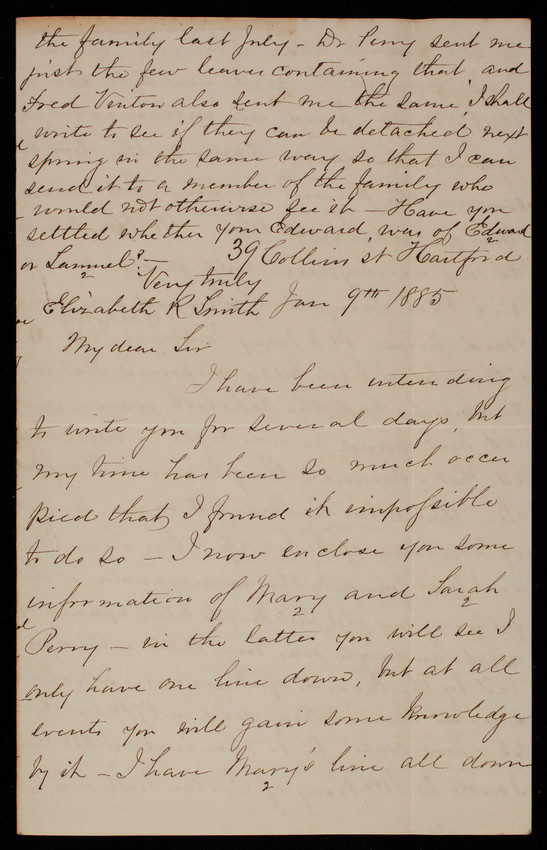 the family last July - Dr Perry sent me
just the few leaves containing that, and
Fred Vinton also sent me the same, I shall
write to see if they can be detached next
spring in the same way so that I can
send it to a member of the family who
would not otherwise see it - Have you
settled whether your Edward, was of Edward 2
or Samuel 2? - 39 Collins st Hartford
Very truly
Elizabeth R Smith Jan 9th 1885
My dear Sir
I have been intending
to write you for several days, but
my time has been so much occu
pied that I found it impossible
to do so - I now enclose you some
information of Mary 2 and Sarah 2
Perry - in the latter you will see I
only have one line down, but at all
events you will gain some knowledge
by it - I have Mary's 2 line all down